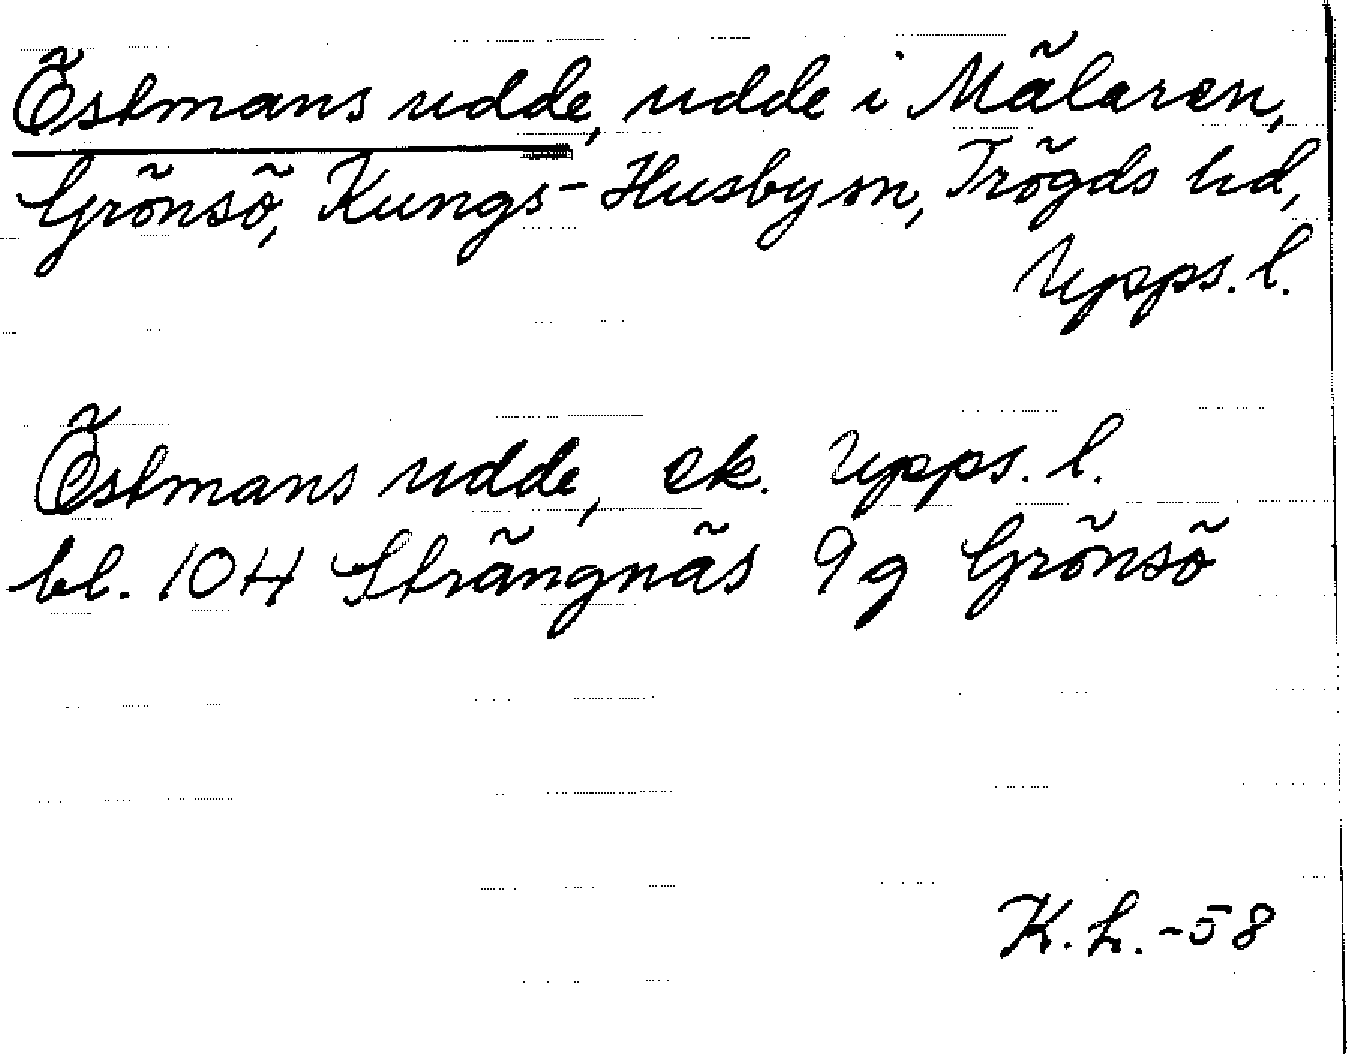 Östmans udde, udde i Mälaren,
Grönsö, Kungs-Husby sn, Trögds hd,
Upps. l.
Östmans udde, ek. Upps. l.
bl. 104 Strängnäs 9g Grönsö
K.h. -58